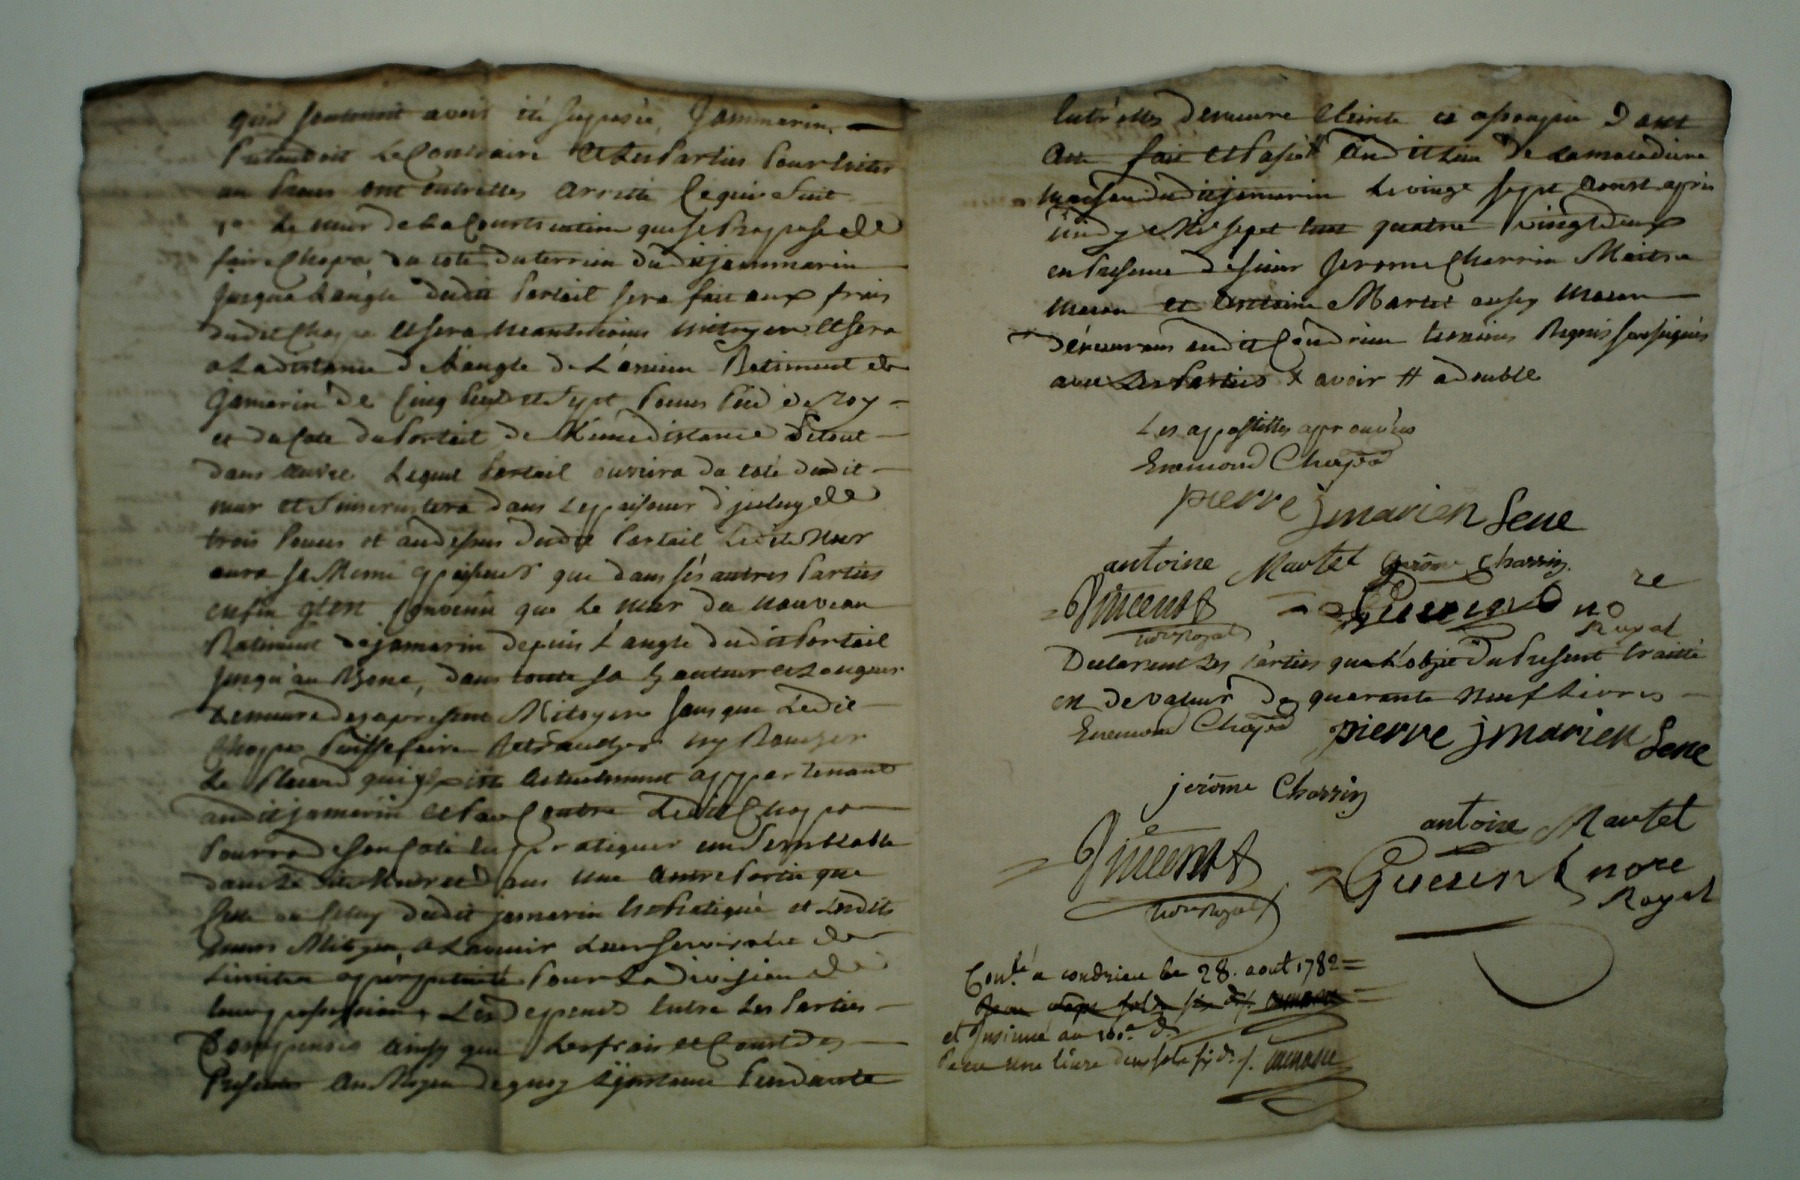 qu'il soutenoit avoir été supposée, Jammarin
Pretendoit le Contraire et les Parties Pour eviter
un Proces ont entr'elles arreté Ce qui Suit
1° Le mur de la Construction que se Propose de
faire Chopa du coté du terrein dudit jammarin
jusqu'a L'angle dudit Portail sera fait aux frais
dudit Choppa et sera neantmoins mitoyen et sera
a La distance de L'angle de L'ancien Batiment de
Jamarin de Cinq pieds et Sept Pouces Pied de Roy
et du Coté du Portail de Meme distance Le tout
dans œuvre Lequel Portail ouvrira du coté dudit
mur et S'incrustera dans L'epaisseur d'iceluy de
trois Pouces et audessus dudit Portail Ledit Mur
aura sa Meme epaisseur que dans ses autres Parties
enfin il est Convenu que le mur du nouveau
Batiment de jamarin depuis L'angle dudit Portail
jusqu'au Rhone, dans toute sa hauteur et Longueur
demeure des apresent Mitoyen sans que Ledit
Choppa Puisse faire Retrancher ny Boucher
Le Placard qui existe actuellement appartenant
audit jamarin et Par Contre Ledit Choppa
Pourra de Son Coté en pratiquer un Semblable
dans Le dit Mur et dans une autre Partie que
Celle ou Celuy dudit jamarin est Pratiqué et Lesdits
murs Mitoyens a L'avenir Leur serviront de
Limites a perpetuité Pour La division de
leurs possessions, Les depends Entre Les Parties
Compensés ainsy que Les frais et Cout des
Presentes au Moyen de quoy L'instance Pendante
Entr'elles demeure Eteinte et assoupie Dont
Acte fait et Passé audit Lieu de La maladiere
maison dudit jamarin Le vingt sept Aoust après
midy Mil sept cent quatre vingt deux
en Presence de sieur Jerome Charrin Maitre
Macon et Antoine Martel aussy Macon
demeurans audit Condrieu temoins Requis soussignés
avec Les Parties x avoir # a double
Les appostilles approuvées
Enemond Chopa
pierre jmarien Sene
antoine Martel Gerôme Charrin
Vincent Guerin no re
nore Royal Royal
Declarent Les Parties que L'objet du Present traitté
est de valeur de quarante neuf Livres
Enemond Chopa pierre jmarien Sene
jerôme Charrin
antoine Martel
Vincent Guerin nore
nore Royal Royal
Conlé a condrieu le 28. aout 1782
et Insinué au 100e d.
Recu une livre deux sols six d.